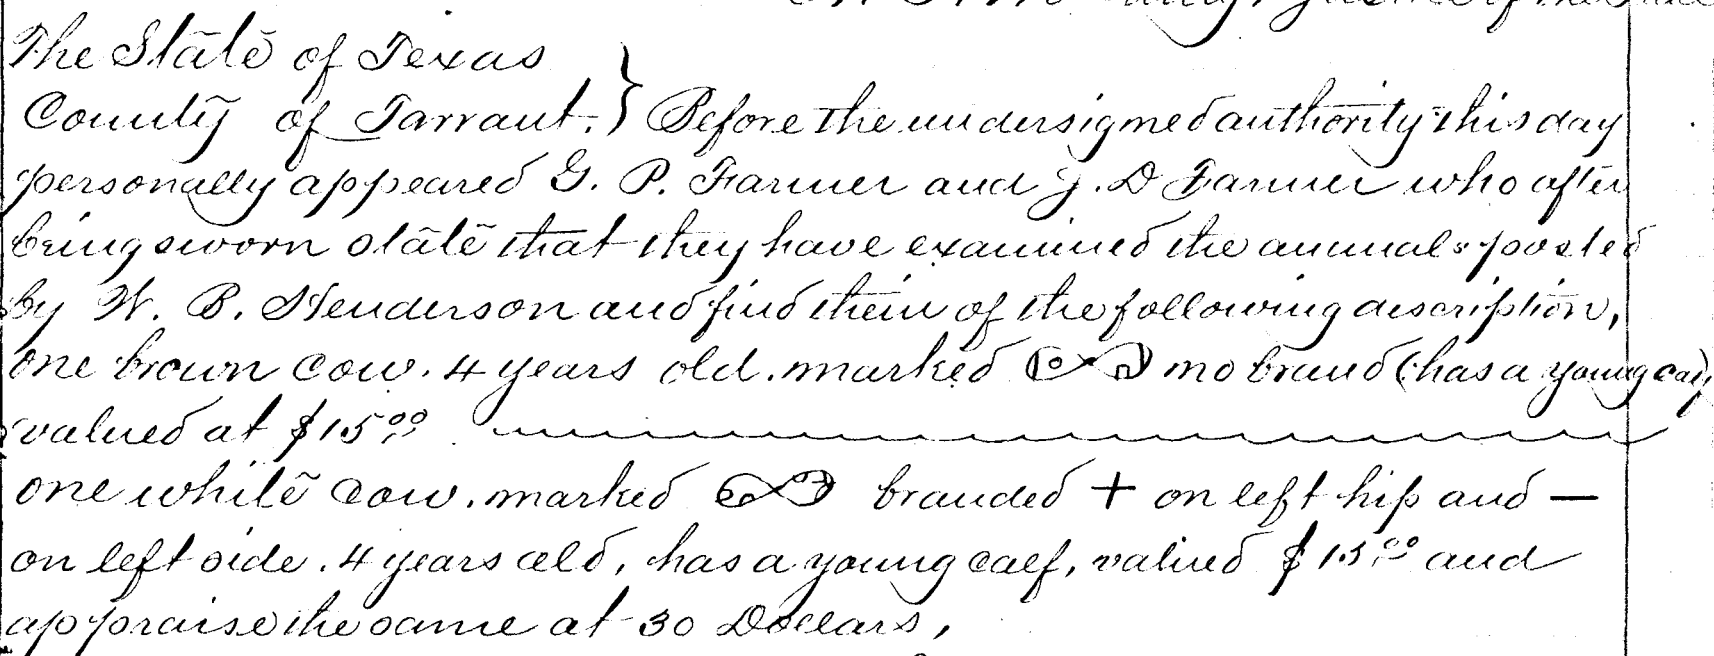 The State of Texas
County of Tarrant. } Before the undersigned authority this day
personally appeared G. P. Farmer and J. D Farmer who after
being sworn state that they have examined the animals posted
by W. B. Henderson and find them of the following description,
one brown cow. 4 years old. marked no brand (has a young calf)
valued at $15.00
one white cow. marked branded + on left hip and —
on left side. 4 years old, has a young calf, valued $15.00 and
appraise the same at 30 Dollars,